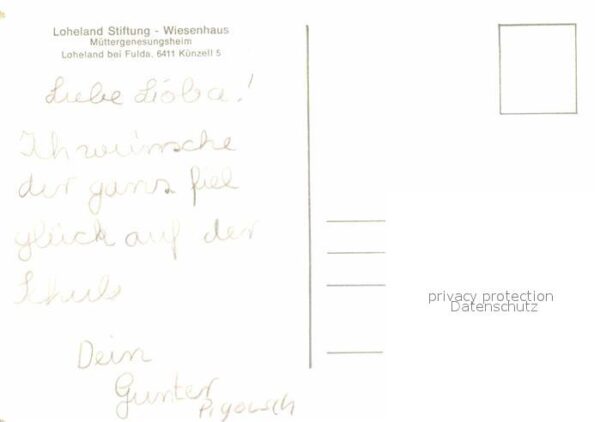 Loheland Stiftung - Wiesenhaus
Müttergenesungsheim
Loheland bei Fulda, 6411 Künzell 5
Liebe Lioba!
Ich wünsche
dir gans fiel
glück auf der
Schule
Dein
Gunter
privacy protection
Datenschutz